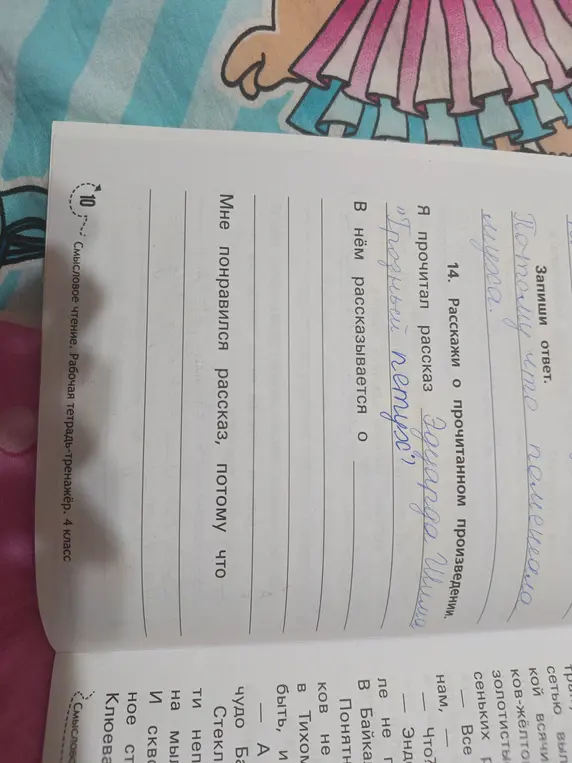 Запиши ответ.
Потому что помешала
муха.
14. Расскажи о прочитанном произведении.
Я прочитал рассказ Эдуарда Шима
"Грозный петух",
В нём рассказывается о
Мне понравился рассказ, потому что
10 Смысловое чтение. Рабочая тетрадь-тренажёр. 4 класс
сетью
кой всячи
ков-жёлто
золотисты
сеньких
— Все
нам, —
— Что?
— Энд
ле не
В Байка
Понятн
ков не
в Тихом
быть, и
— А
чудо Ба
Стекл
ти неп
на мыл
И скво
ное ст
Клюева
Смыслово